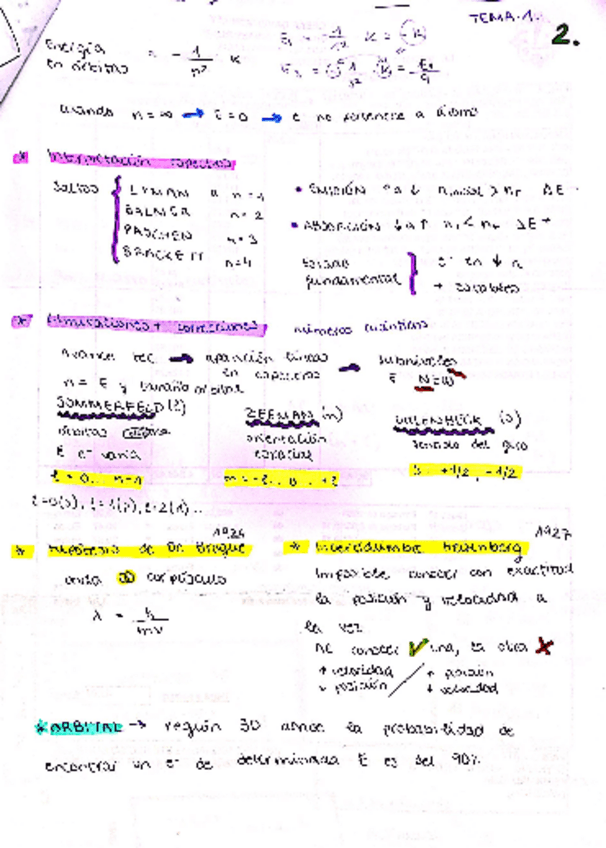 TEMA 1.
2.
Energía en órbitas = - 1/n² · K
E₁ = - 1/1² K = -K
cuando n = ∞ → E = 0 → e⁻ no pertenece a átomo
* Interpretación espectros
SALIDO
LYMAN a n = 1
BALMER n = 2
PASCHEN n = 3
BRACKETT n = 4
• EMISIÓN ↑ a ↓ n inicial > nF ΔE -
• ABSORCIÓN ↓ a ↑ ni < nF ΔE +
Estado fundamental } e⁻ en ↓ n
+ estables
* Limitaciones + correcciones números cuánticos
Avance tec. → aparición líneas en espectros → subniveles
n = E y tamaño orbital
SOMMERFELD (l)
órbitas elíptica
E e⁻ varía
l = 0 ... n-1
ZEEMAN (m)
orientación espacial
m = -l .. 0 .. +l
UHLENBECK (s)
sentido del giro
s = +1/2, -1/2
l=0(s), l=1(p), l=2(d)...
* Hipótesis de De Broglie 1924
onda corpúsculo
λ = h/mv
* Incertidumbre Heisenberg 1927
Imposible conocer con exactitud
la posición y velocidad a
la vez.
Al conocer ✓ una, la otra ✗
↑ velocidad ↓ posición / ↑ posición ↓ velocidad
* ORBITAL → región 3D donde la probabilidad de
encontrar un e⁻ de determinada E es del 90%